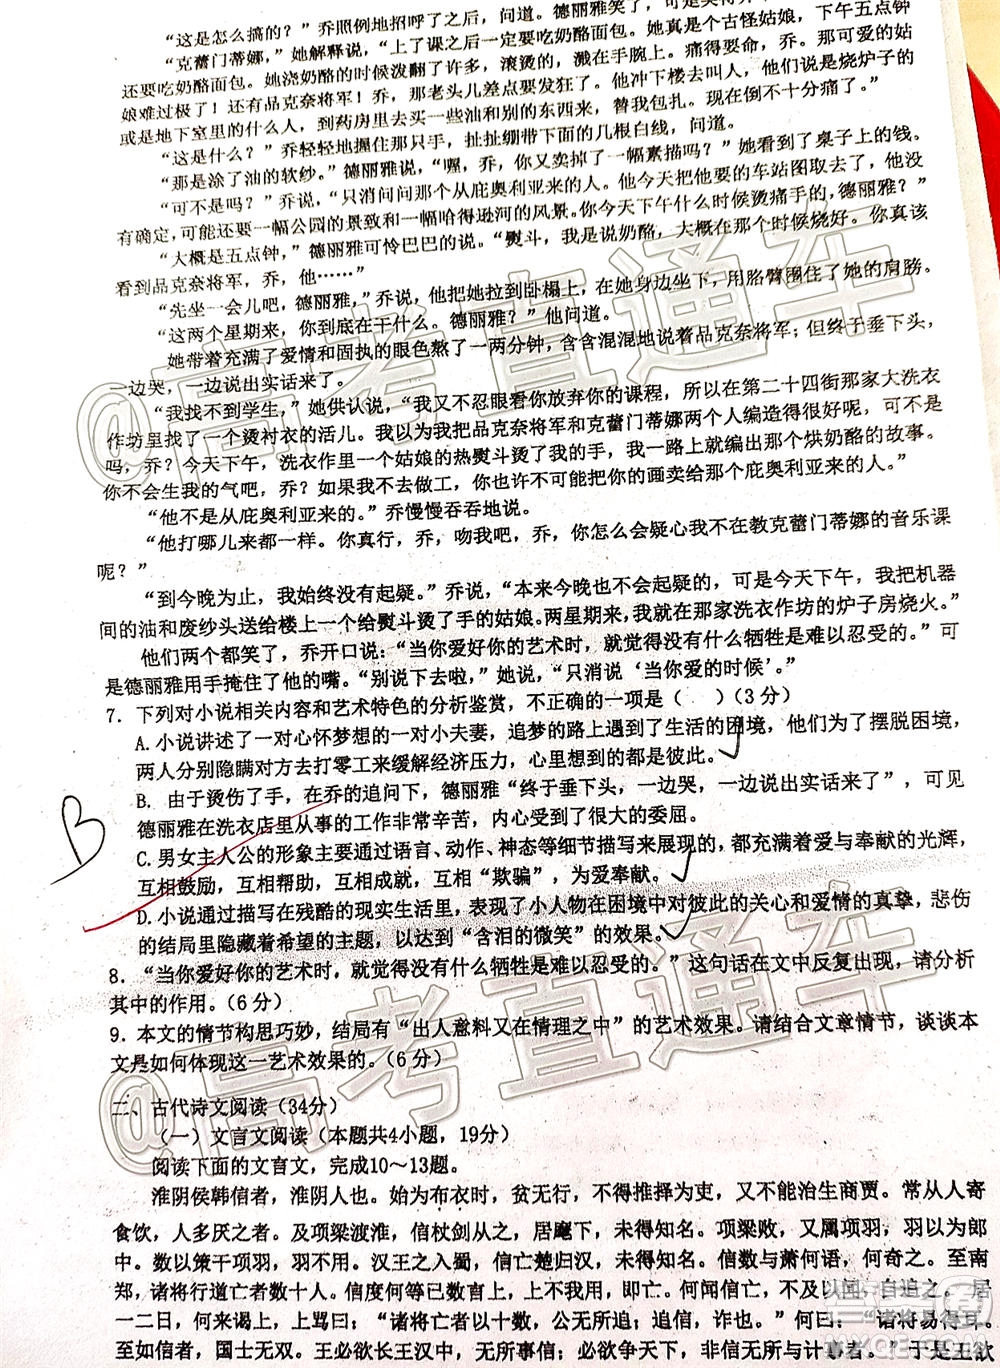 “这是怎么搞的？”乔照例地招呼了之后，问道。德丽雅笑了，可
“克蕾门蒂娜，”她解释说，“上了课之后一定要吃奶酪面包。她真是个古怪姑娘，下午五点钟
还要吃奶酪面包。她浇奶酪的时候泼翻了许多，滚烫的，溅在手腕上。痛得要命，乔。那可爱的姑
娘难过极了！还有品克奈将军！乔，那老头儿差点要发狂了。他冲下楼去叫人——他们说是烧炉子的
或是地下室里的什么人，到药房里去买一些油和别的东西来，替我包扎。现在倒不十分痛了。”
“这是什么？”乔轻轻地握住那只手，扯扯绷带下面的几根白线，问道。
“那是涂了油的软纱。”德丽雅说，“喔，乔，你又卖掉了一幅素描吗？”她看到了桌子上的钱。
“可不是吗？”乔说，“只消问问那个从庇奥利亚来的人。他今天把他要的车站图取去了，他没
有确定，可能还要一幅公园的景致和一幅哈得逊河的风景。你今天下午什么时候烫痛手的，德丽雅？”
“大概是五点钟，”德丽雅可怜巴巴的说。“熨斗，我是说奶酪，大概在那个时候烧好。你真该
看到品克奈将军，乔，他……”
“先坐一会儿吧，德丽雅，”乔说，他把她拉到卧榻上，在她身边坐下，用胳臂围住了她的肩膀。
“这两个星期来，你到底在干什么。德丽雅？”他问道。
她带着充满了爱情和固执的眼色熬了一两分钟，含含混混地说着品克奈将军；但终于垂下头，
一边哭，一边说出实话来了。
“我找不到学生，”她供认说，“我又不忍眼看你放弃你的课程，所以在第二十四街那家大洗衣
作坊里找了一个烫衬衣的活儿。我以为我把品克奈将军和克蕾门蒂娜两个人编造得很好呢，可不是
吗，乔？今天下午，洗衣作里一个姑娘的热熨斗烫了我的手，我一路上就编出那个烘奶酪的故事。
你不会生我的气吧，乔？如果我不去做工，你也许不可能把你的画卖给那个庇奥利亚来的人。”
“他不是从庇奥利亚来的。”乔慢慢吞吞地说。
“他打哪儿来都一样。你真行，乔，吻我吧，你怎么会疑心我不在教克蕾门蒂娜的音乐课
呢？”
“到今晚为止，我始终没有起疑。”乔说，“本来今晚也不会起疑的，可是今天下午，我把机器
间的油和废纱头送给楼上一个给熨斗烫了手的姑娘。两星期来，我就在那家洗衣作坊的炉子房烧火。”
他们两个都笑了，乔开口说：“当你爱好你的艺术时，就觉得没有什么牺牲是难以忍受的。”可
是德丽雅用手掩住了他的嘴。“别说下去啦，”她说，“只消说‘当你爱的时候’。”
7．下列对小说相关内容和艺术特色的分析鉴赏，不正确的一项是（　）(3分)
A.小说讲述了一对心怀梦想的一对小夫妻，追梦的路上遇到了生活的困境，他们为了摆脱困境，
两人分别隐瞒对方去打零工来缓解经济压力，心里想到的都是彼此。
B．由于烫伤了手，在乔的追问下，德丽雅“终于垂下头，一边哭，一边说出实话来了”，可见
德丽雅在洗衣店里从事的工作非常辛苦，内心受到了很大的委屈。
B
C.男女主人公的形象主要通过语言、动作、神态等细节描写来展现的，都充满着爱与奉献的光辉，
互相鼓励，互相帮助，互相成就，互相“欺骗”，为爱奉献。
D.小说通过描写在残酷的现实生活里，表现了小人物在困境中对彼此的关心和爱情的真挚，悲伤
的结局里隐藏着希望的主题，以达到“含泪的微笑”的效果。
8．“当你爱好你的艺术时，就觉得没有什么牺牲是难以忍受的。”这句话在文中反复出现，请分析
其中的作用。(6分)
9．本文的情节构思巧妙，结局有“出人意料又在情理之中”的艺术效果。请结合文章情节，谈谈本
文是如何体现这一艺术效果的。(6分)
二、古代诗文阅读(34分)
（一）文言文阅读（本题共4小题，19分）
阅读下面的文言文，完成10～13题。
淮阴侯韩信者，淮阴人也。始为布衣时，贫无行，不得推择为吏，又不能治生商贾。常从人寄
食饮，人多厌之者。及项梁渡淮，信杖剑从之，居麾下，未得知名。项梁败，又属项羽，羽以为郎
中。数以策干项羽，羽不用。汉王之入蜀，信亡楚归汉，未得知名。信数与萧何语，何奇之。至南
郑，诸将行道亡者数十人。信度何等已数言上，上不我用，即亡。何闻信亡，不及以闻，自追之。居
一二日，何来谒上，上骂何曰：“诸将亡者以十数，公无所追；追信，诈也。”何曰：“诸将易得耳，
至如信者，国士无双。王必欲长王汉中，无所事信；必欲争天下，非信无所与计事者。”于是王欲
@高考直通车
@高考直通车